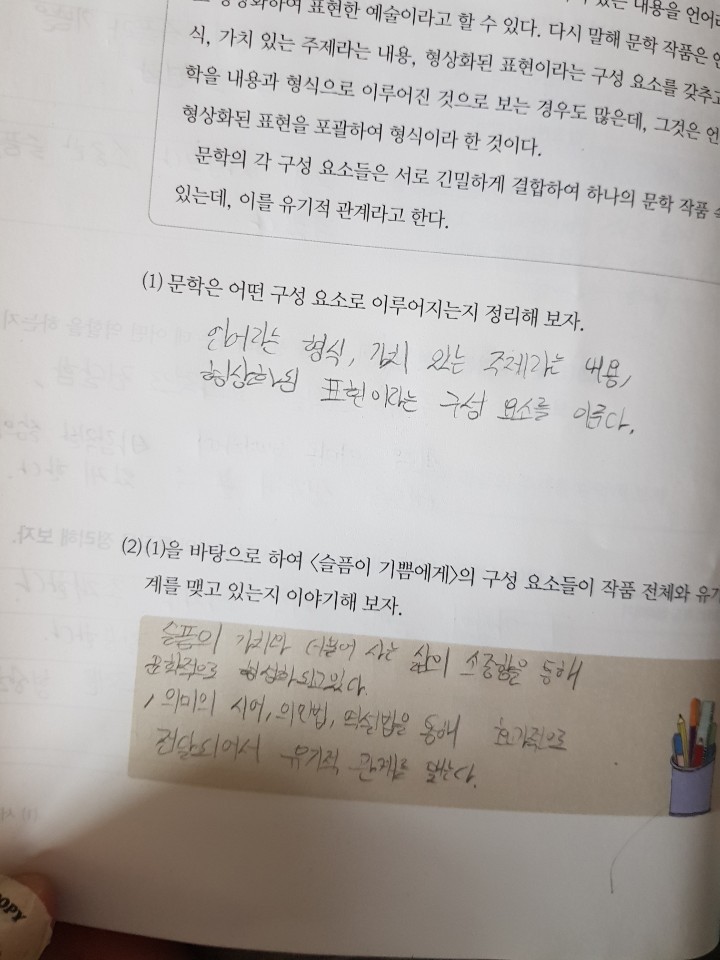 형상화하여 표현한 예술이라고 할 수 있다. 다시 말해 문학 작품은 언
있는 내용을 언어라
식, 가치 있는 주제라는 내용, 형상화된 표현이라는 구성 요소를 갖추고
학을 내용과 형식으로 이루어진 것으로 보는 경우도 많은데, 그것은 언
형상화된 표현을 포괄하여 형식이라 한 것이다.
문학의 각 구성 요소들은 서로 긴밀하게 결합하여 하나의 문학 작품 속
있는데, 이를 유기적 관계라고 한다.
(1) 문학은 어떤 구성 요소로 이루어지는지 정리해 보자.
언어라는 형식, 가치 있는 주제라는 내용,
형상화된 표현이라는 구성 요소를 이룬다.
(2) (1)을 바탕으로 하여 〈슬픔이 기쁨에게〉의 구성 요소들이 작품 전체와 유기
계를 맺고 있는지 이야기해 보자.
슬픔의 가치와 더불어 사는 삶의 소중함을 통해
문학적으로 형상화되고있다.
, 의미의 시어, 의인법, 역설법을 통해 효과적으로
전달되어서 유기적 관계를 맺는다.
COPY